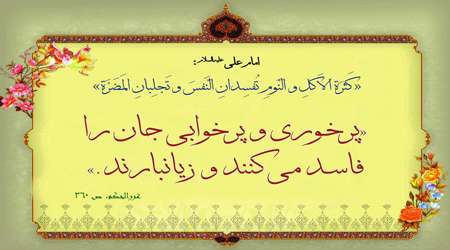 امام علی علیه‌السلام:
«کَثرَةُ الاَکلِ و النَومِ تُفسِدانِ النَفسَ و تَجلِبانِ المَضَرَّة»
«پرخوری و پرخوابی جان را
فاسد می‌کنند و زیانبارند.»
غررالحکم، ص ۳۶۰